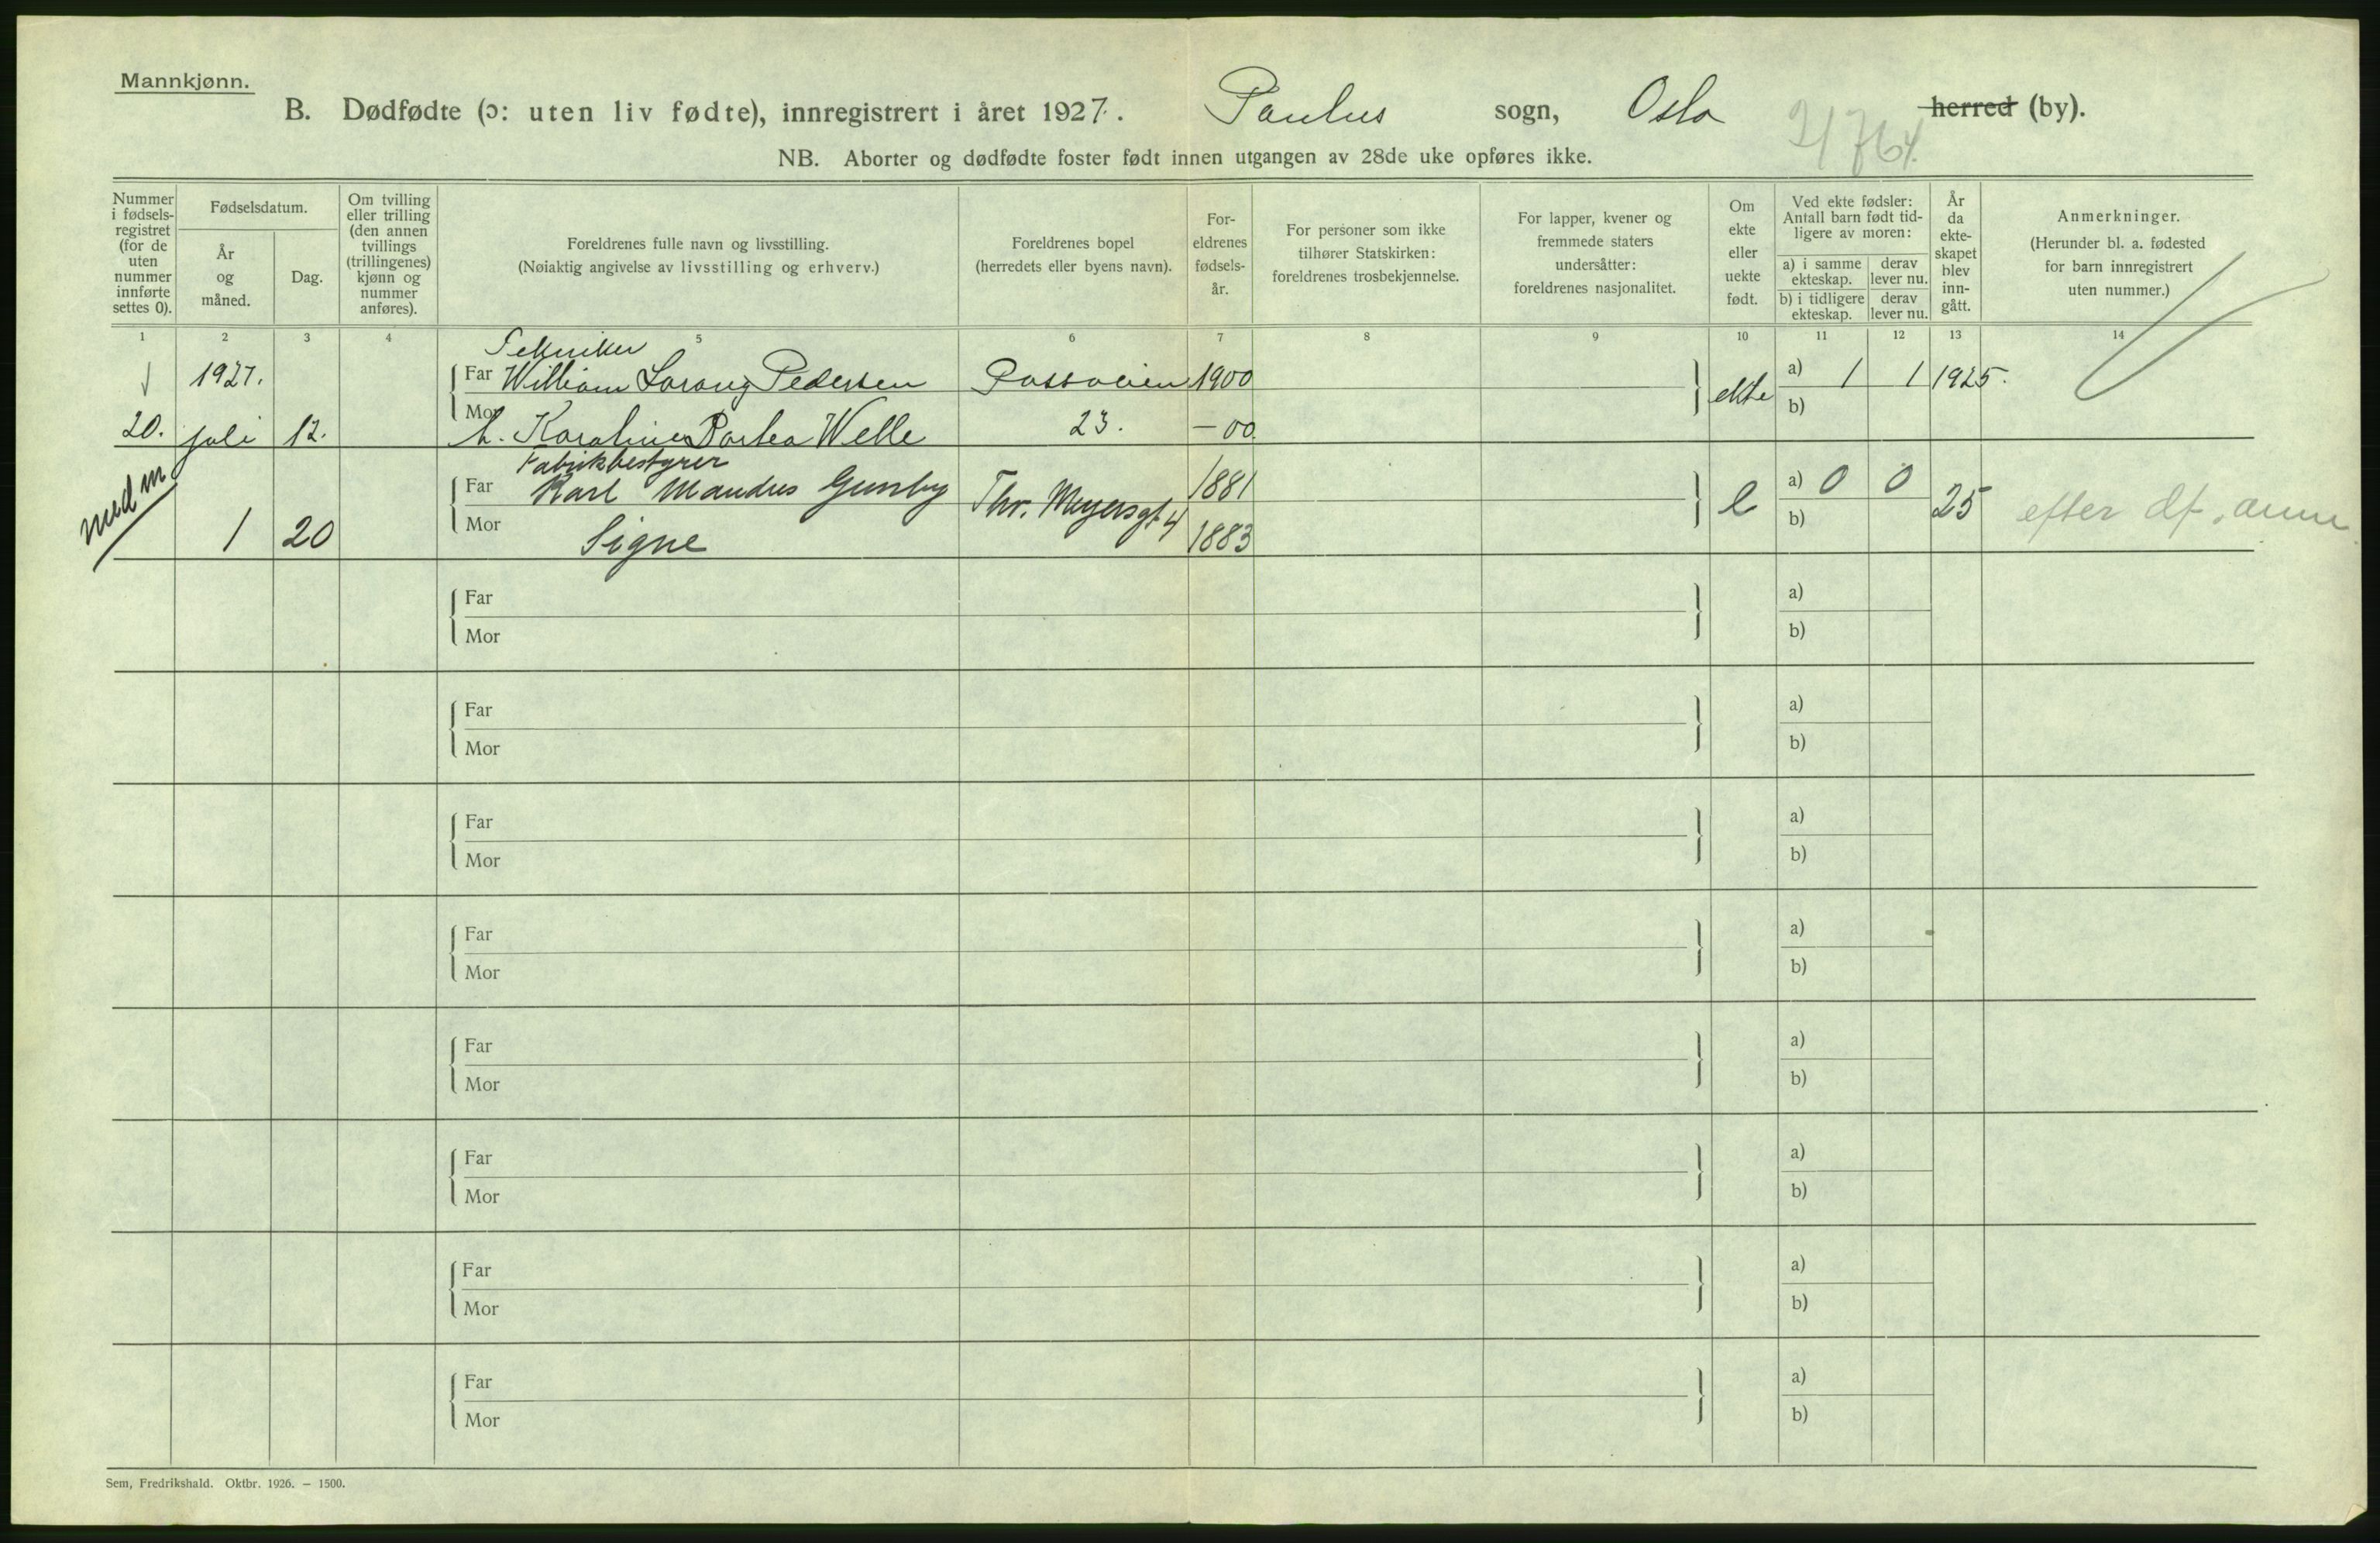 Mannkjønn.
B. Dødfødte (ɔ: uten liv fødte), innregistrert i året 1927. Paulus sogn, Oslo herred (by).
NB. Aborter og dødfødte foster født innen utgangen av 28de uke opføres ikke.
Nummer i fødsels-registret (for de uten nummer innførte settes 0).
Fødselsdatum.
År og måned.
Dag.
Om tvilling eller trilling (den annen tvillings (trillingenes) kjønn og nummer anføres).
Foreldrenes fulle navn og livsstilling.
(Nøiaktig angivelse av livsstilling og erhverv.)
Foreldrenes bopel
(herredets eller byens navn).
For-eldrenes fødsels-år.
For personer som ikke tilhører Statskirken: foreldrenes trosbekjennelse.
For lapper, kvener og fremmede staters undersåtter: foreldrenes nasjonalitet.
Om ekte eller uekte født.
Ved ekte fødsler: Antall barn født tid-ligere av moren:
a) i samme ekteskap. derav lever nu.
b) i tidligere ekteskap. derav lever nu.
År da ekte-skapet blev inn-gått.
Anmerkninger.
(Herunder bl. a. fødested for barn innregistrert uten nummer.)
1 2 3 4 5 6 7 8 9 10 11 12 13 14
Tekniker
1927. Far William Pedersen 1900 ekte a) 1 1 1925.
20. juli 12. Mor h. Karoline Welle 23. – 00. b)
med m
Fabrikbestyrer
Far Karl Mandus Gunby Thv. Meyersgt 4 1881 e a) 0 0 25 efter df. anm
1 20 Mor Signe 1883 b)
Far a)
Mor b)
Far a)
Mor b)
Far a)
Mor b)
Far a)
Mor b)
Far a)
Mor b)
Far a)
Mor b)
Far a)
Mor b)
Far a)
Mor b)
Sem, Fredrikshald. Oktbr. 1926. – 1500.